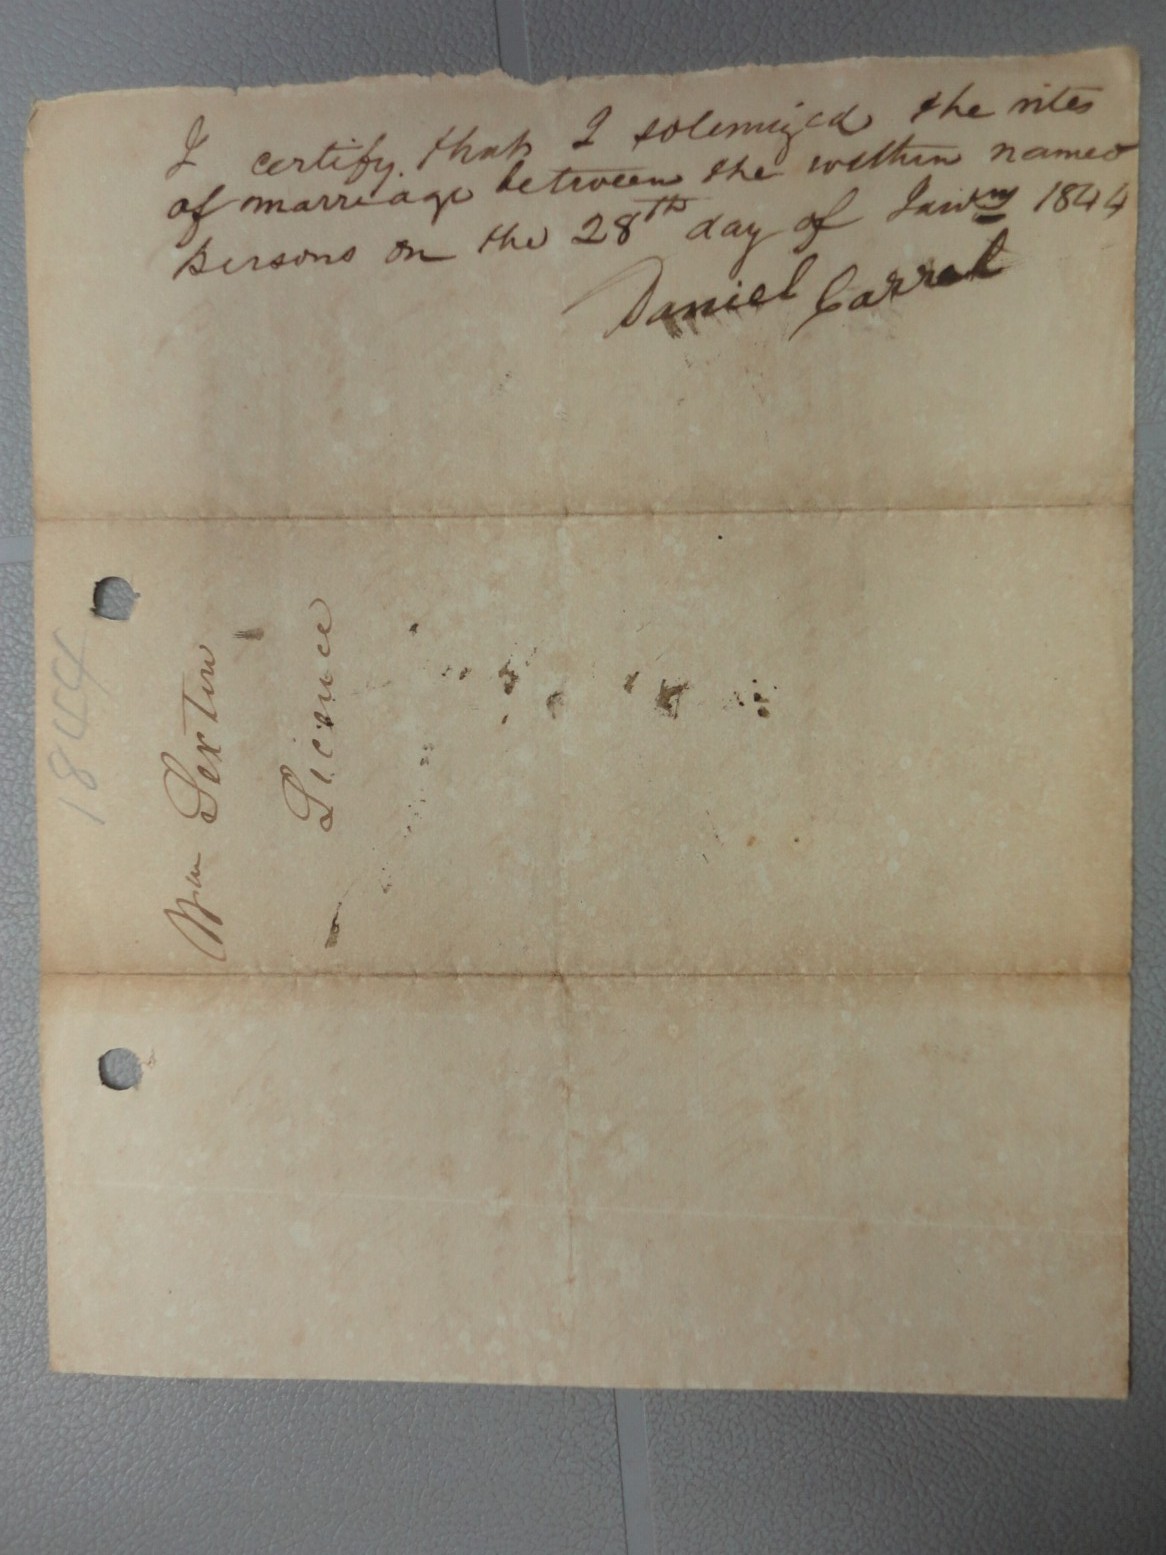 I certify that I solemized the rites
of marriage between the within named
persons on the 28th day of Jan'ry 1844
Daniel Carrel
1844
Wm Sexton
Licence